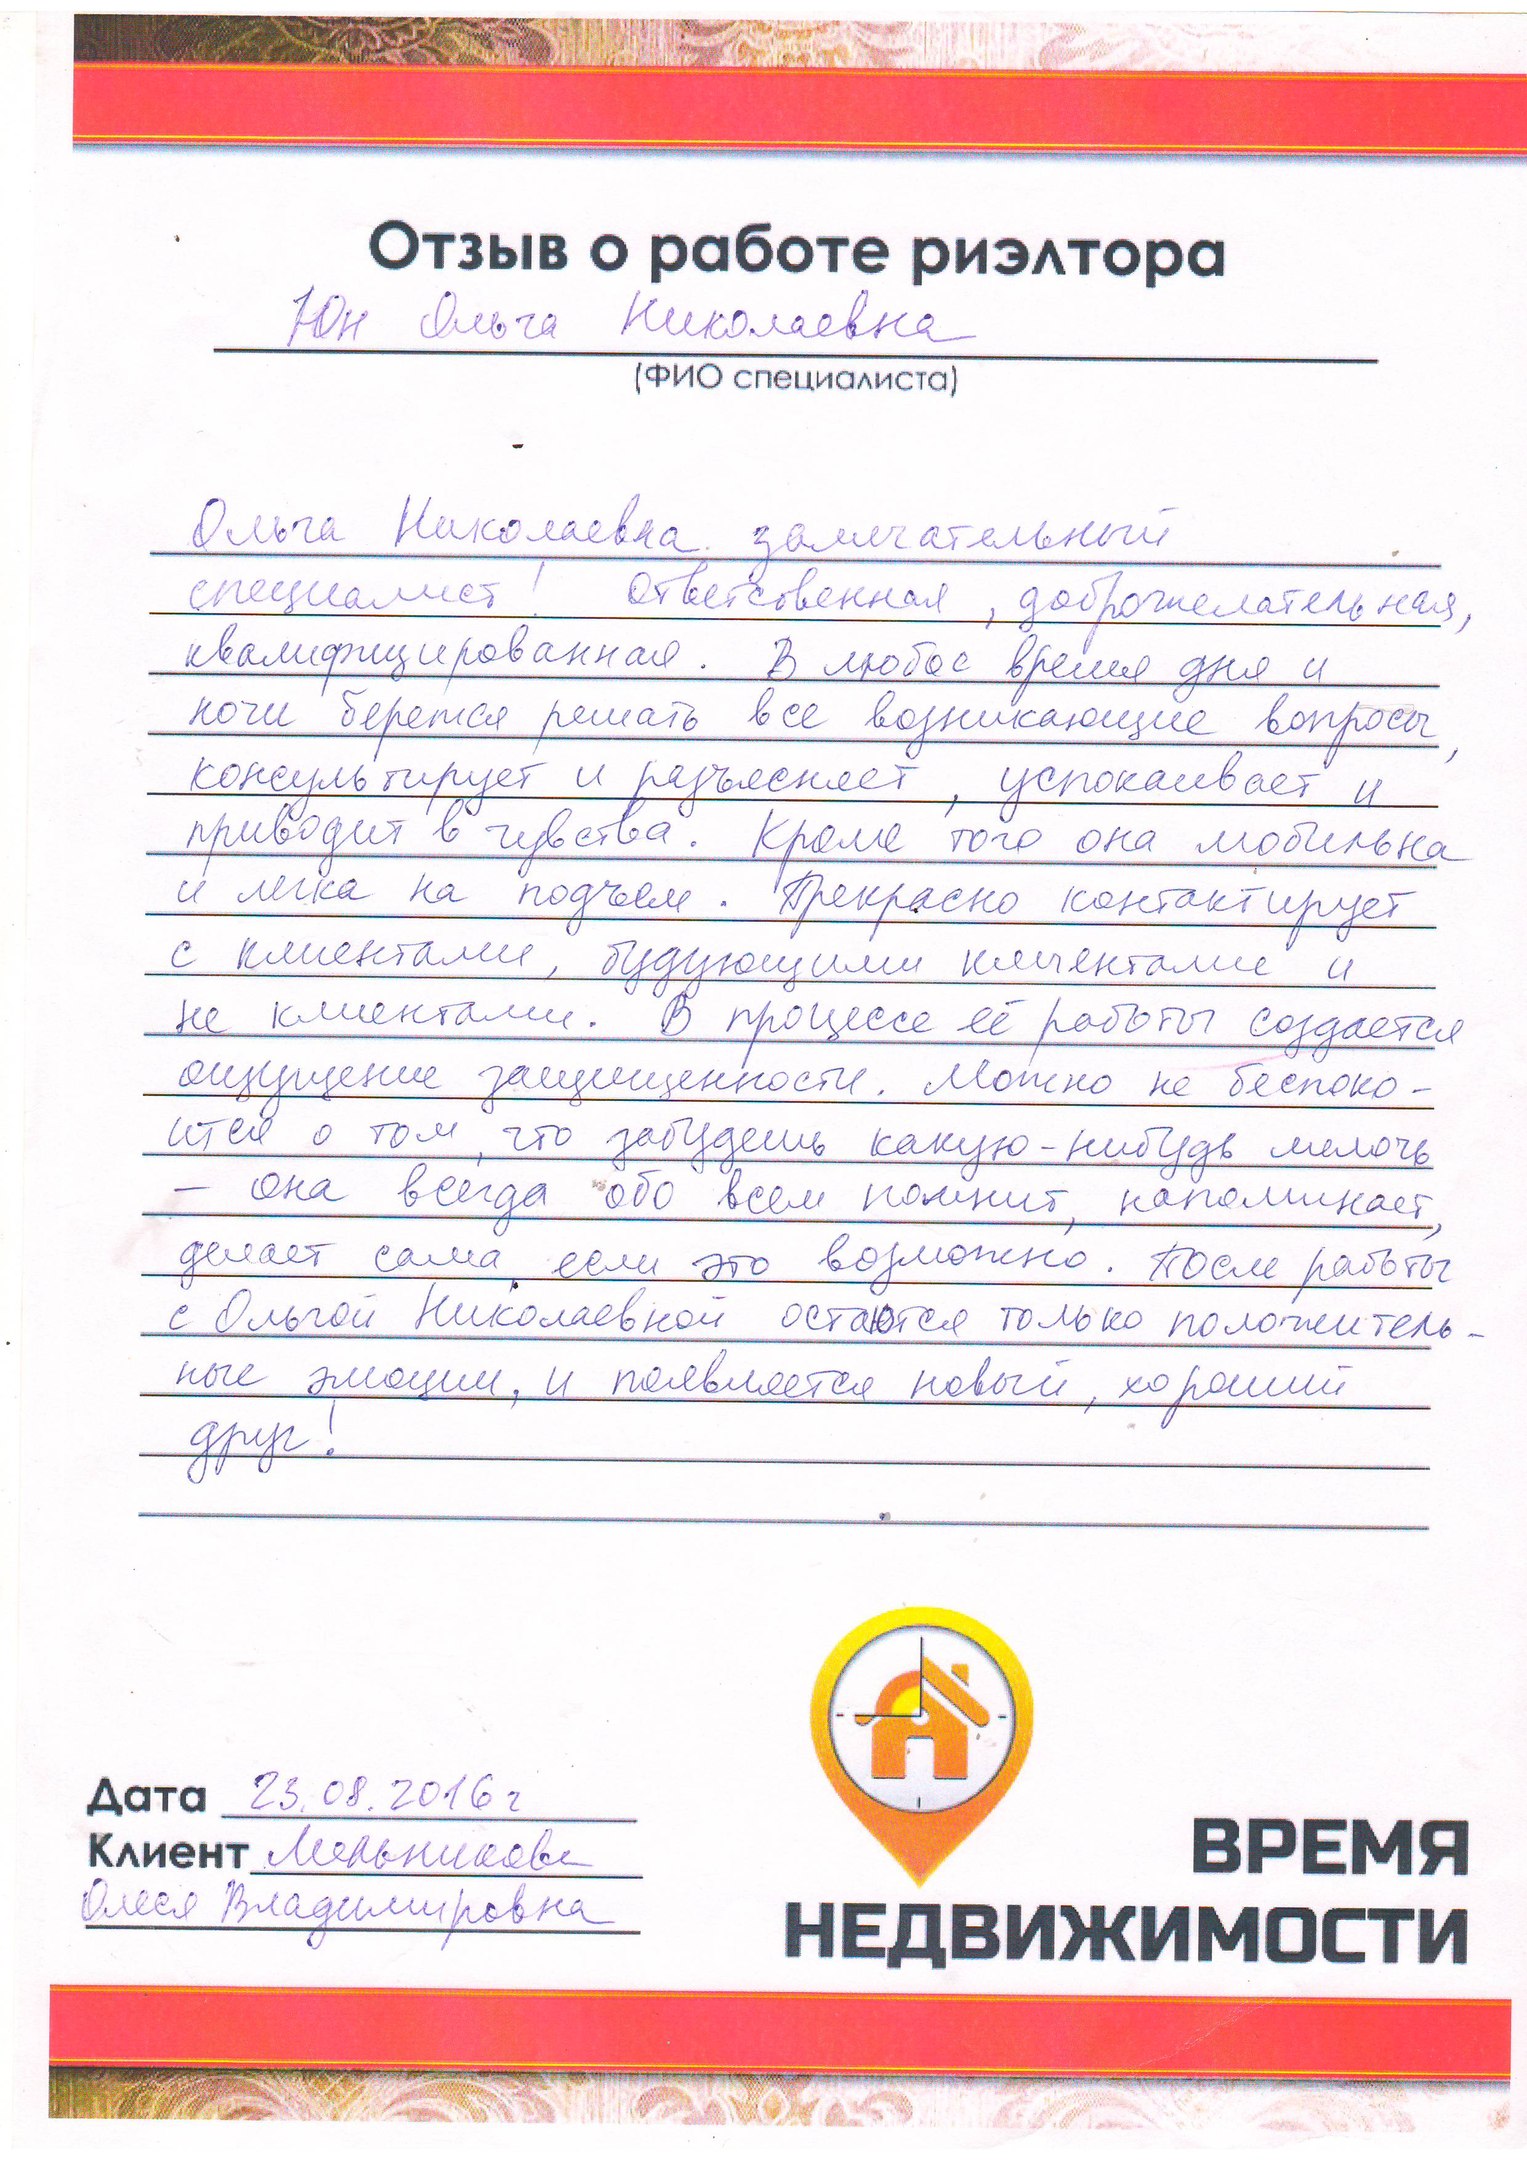 Отзыв о работе риэлтора
Юн Ольга Николаевна
(ФИО специалиста)
Ольга Николаевна замечательный
специалист! Ответственная, доброжелательная,
квалифицированная. В любое время дня и
ночи берется решать все возникающие вопросы,
консультирует и разъясняет, успокаивает и
приводит в чувства. Кроме того она мобильна
и легка на подъем. Прекрасно контактирует
с клиентами, будующими клиентами и
не клиентами. В процессе её работы создается
ощущение защищенности. Можно не беспоко-
ится о том, что забудешь какую-нибудь мелочь
- она всегда обо всем помнит, напоминает,
делает сама, если это возможно. После работы
с Ольгой Николаевной остаются только положитель-
ные эмоции, и появляется новый, хороший
друг!
Дата 23.08.2016г
Клиент Мельникова
Олеся Владимировна
ВРЕМЯ
НЕДВИЖИМОСТИ